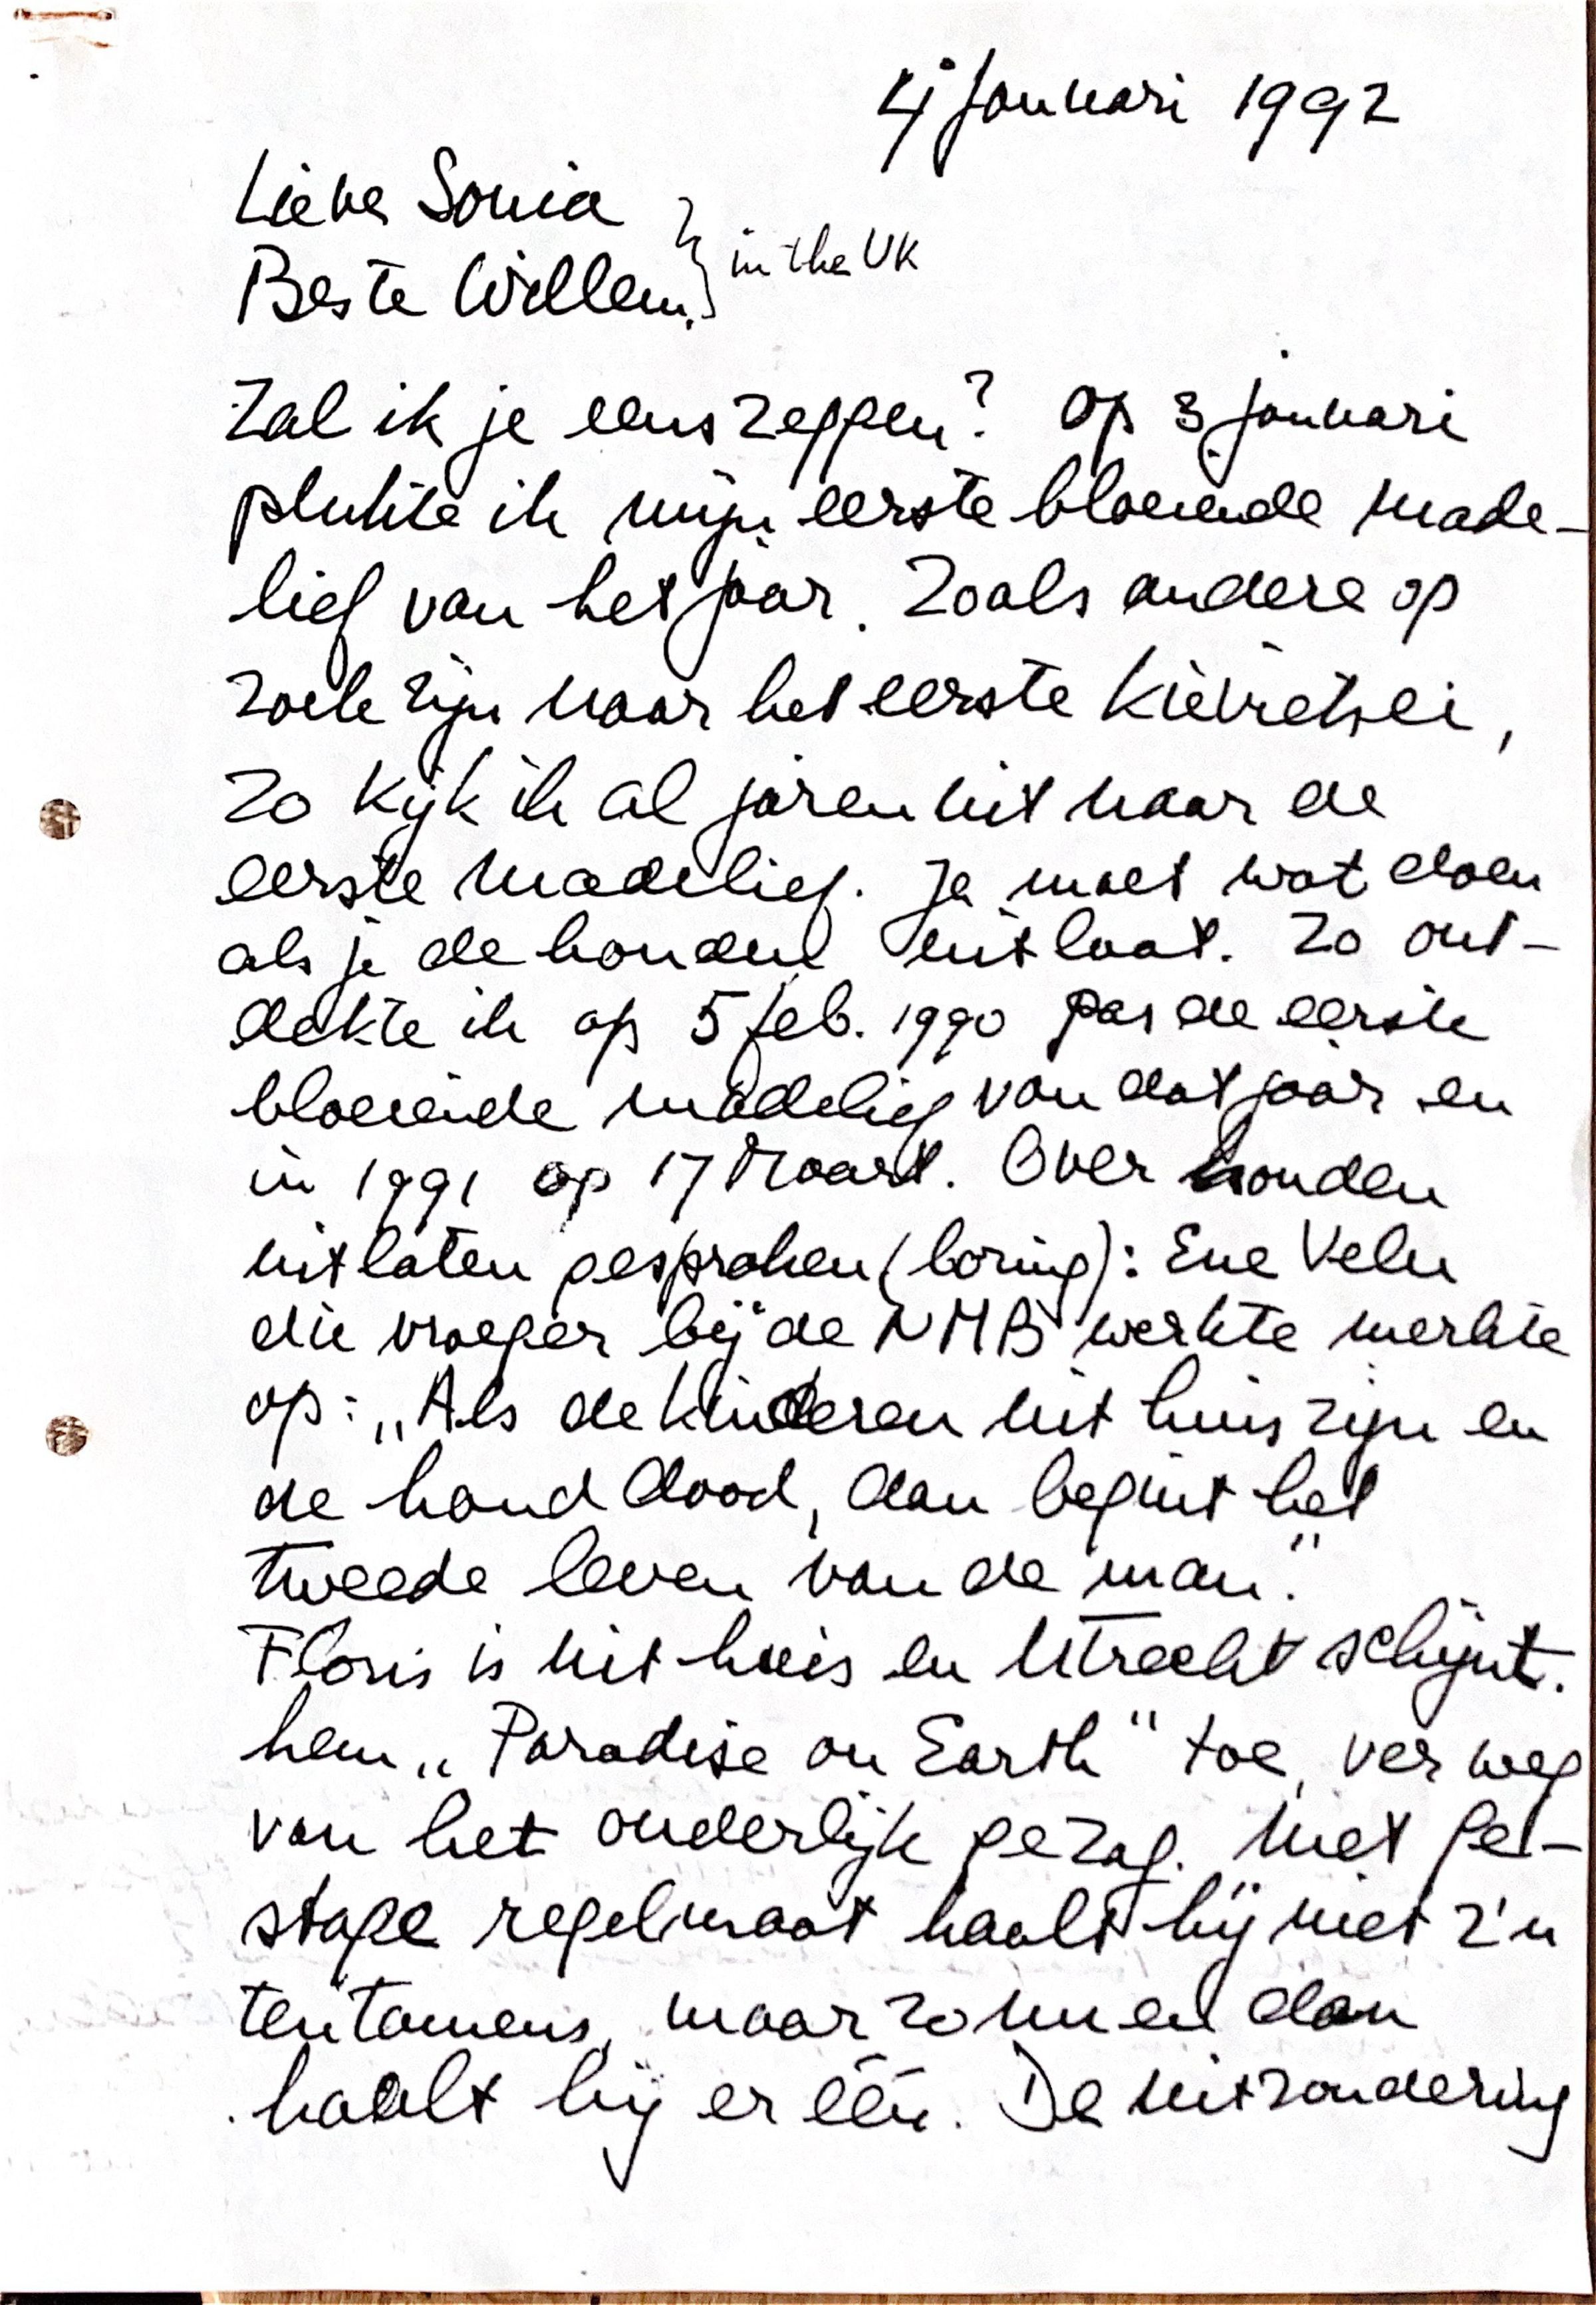 4 januari 1992
Lieve Sonia
Beste Willem } in the UK
Zal ik je eens zeggen? Op 3 januari
plukte ik mijn eerste bloeiende made-
lief van het jaar. Zoals andere op
zoek zijn naar het eerste kievietsei,
zo kijk ik al jaren uit naar de
eerste madelief. Je moet wat doen
als je de honden uitlaat. Zo ont-
dekte ik op 5 feb. 1990 pas de eerste
bloeiende madelief van dat jaar en
in 1991 op 17 Maart. Over honden
uitlaten gesproken (boring): Ene Velu
die vroeger bij de NMB werkte merkte
op: „Als de kinderen uit huis zijn en
de hond dood, dan begint het
tweede leven van de man."
Floris is uit huis en Utrecht schijnt
hem „Paradise on Earth" toe, ver weg
van het ouderlijk gezag. Met ge-
stage regelmaat haalt hij niet z'n
tentamens, maar zo nu en dan
haalt hij er één. De uitzondering